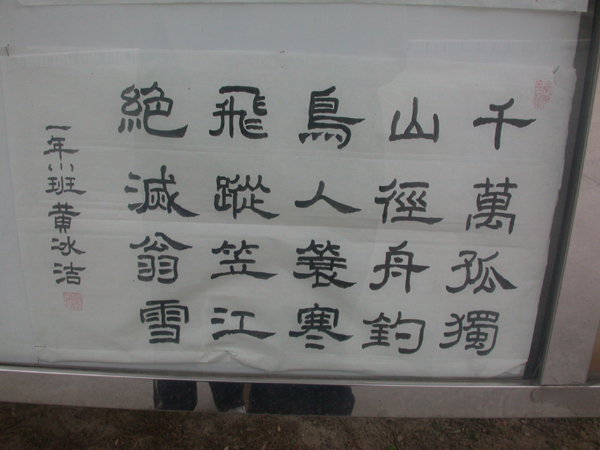 千山鳥飛絶
萬徑人蹤滅
孤舟簑笠翁
獨釣寒江雪
一年班 黄冰洁